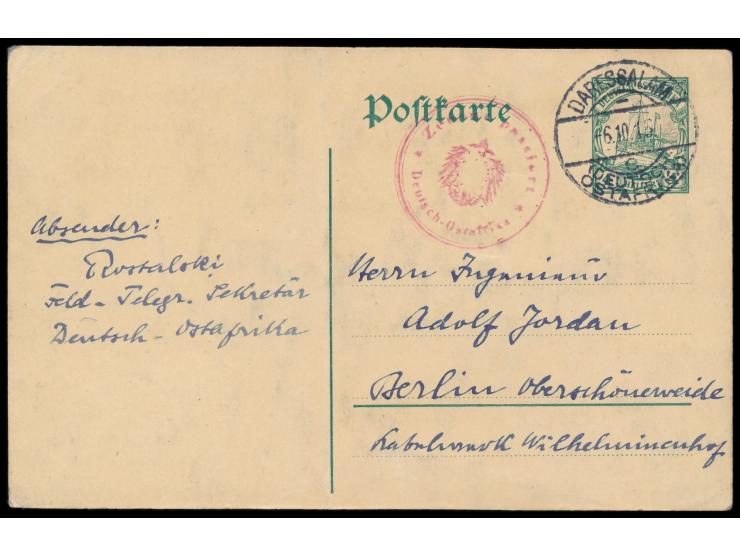 Postkarte
DARESSALAM
6.10.15
c
(DEUTSCH-
OSTAFRIKA)
Zensur passiert
Deutsch-Ostafrika
Absender:
Rostalski
Feld-Telegr. Sekretär
Deutsch-Ostafrika
Herrn Ingenieur
Adolf Jordan
Berlin Oberschöneweide
Kabelwerk Wilhelminenhof